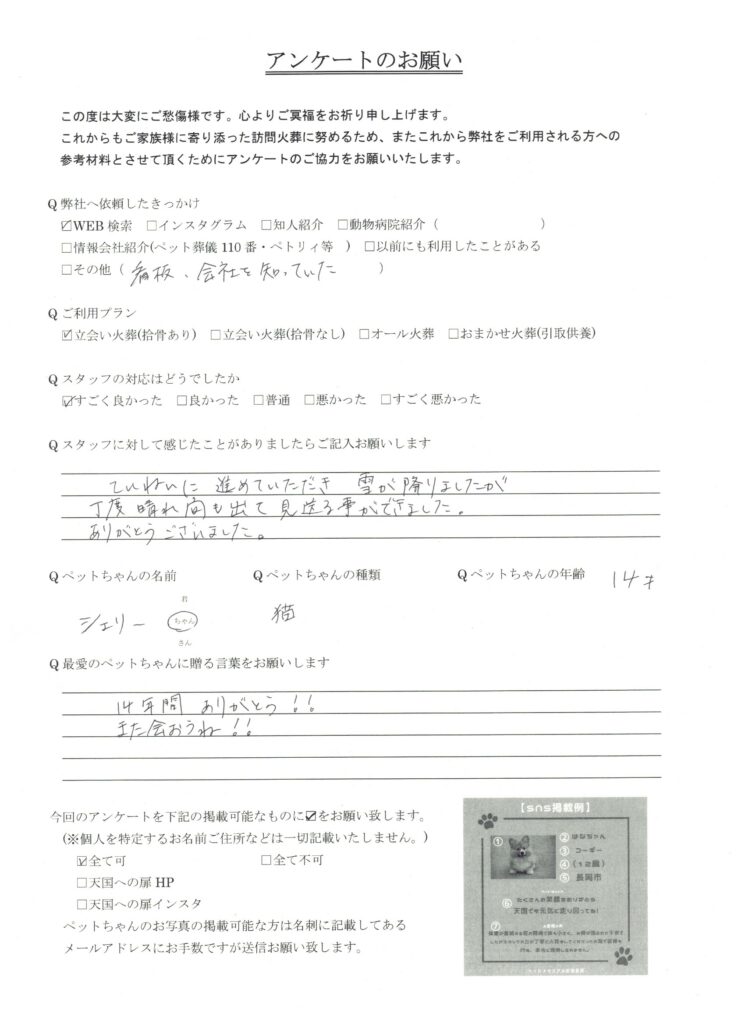 アンケートのお願い
この度は大変にご愁傷様です。心よりご冥福をお祈り申し上げます。
これからもご家族様に寄り添った訪問火葬に努めるため、またこれから弊社をご利用される方への
参考材料とさせて頂くためにアンケートのご協力をお願いいたします。
Q 弊社へ依頼したきっかけ
☑WEB 検索 □インスタグラム □知人紹介 □動物病院紹介（ ）
□情報会社紹介(ペット葬儀 110 番・ペトリィ等 ) □以前にも利用したことがある
□その他（ 看板、会社を知っていた ）
Q ご利用プラン
☑立会い火葬(拾骨あり) □立会い火葬(拾骨なし) □オール火葬 □おまかせ火葬(引取供養)
Q スタッフの対応はどうでしたか
☑すごく良かった □良かった □普通 □悪かった □すごく悪かった
Q スタッフに対して感じたことがありましたらご記入お願いします
ていねいに 進めていただき 雪が降りましたが
丁度晴れ間も出て見送る事ができました。
ありがとうございました。
Q ペットちゃんの名前 Q ペットちゃんの種類 Q ペットちゃんの年齢 14才
君
シェリー ちゃん 猫
さん
Q 最愛のペットちゃんに贈る言葉をお願いします
14年間 ありがとう!!
また会おうね!!
今回のアンケートを下記の掲載可能なものに☑をお願い致します。
(※個人を特定するお名前ご住所などは一切記載いたしません。)
☑全て可 □全て不可
□天国への扉 HP
□天国への扉インスタ
ペットちゃんのお写真の掲載可能な方は名刺に記載してある
メールアドレスにお手数ですが送信お願い致します。
【sns掲載例】
① ② はなちゃん
③ コーギー
④ (12歳)
⑤ 長岡市
⑥ たくさんの笑顔をありがとう
天国でも元気に走り回ってね!
⑦